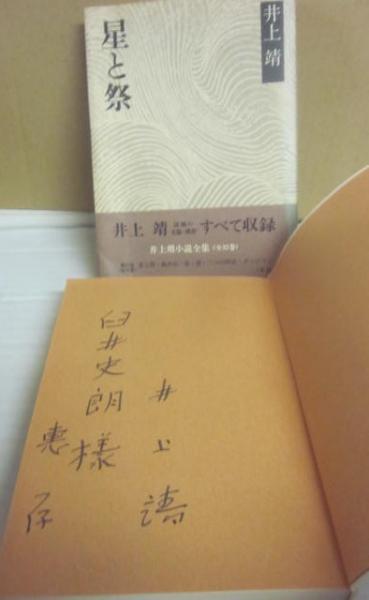 井上 靖
星と祭
井上 靖
すべて収録
井上靖小説全集(全32巻)
臼井史朗様
恵存
井上靖